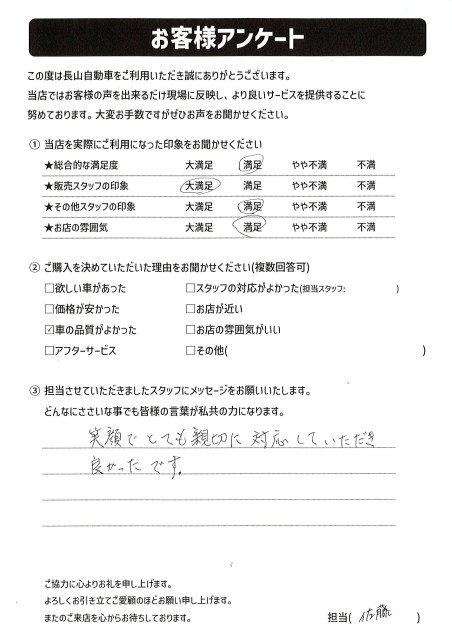 お客様アンケート
この度は長山自動車をご利用いただき誠にありがとうございます。
当店ではお客様の声を出来るだけ現場に反映し、より良いサービスを提供することに
努めております。大変お手数ですがぜひお声をお聞かせください。
① 当店を実際にご利用になった印象をお聞かせください
★総合的な満足度 大満足 満足 やや不満 不満
★販売スタッフの印象 大満足 満足 やや不満 不満
★その他スタッフの印象 大満足 満足 やや不満 不満
★お店の雰囲気 大満足 満足 やや不満 不満
② ご購入を決めていただいた理由をお聞かせください(複数回答可)
□欲しい車があった □スタッフの対応がよかった(担当スタッフ: )
□価格が安かった □お店が近い
☑車の品質がよかった □お店の雰囲気がいい
□アフターサービス □その他( )
③ 担当させていただきましたスタッフにメッセージをお願いいたします。
どんなにささいな事でも皆様の言葉が私共の力になります。
笑顔でとても親切に対応していただき
良かったです。
ご協力に心よりお礼を申し上げます。
よろしくお引き立てご愛顧のほどお願い申し上げます。
またのご来店を心からお待ちしております。 担当( 佐藤 )